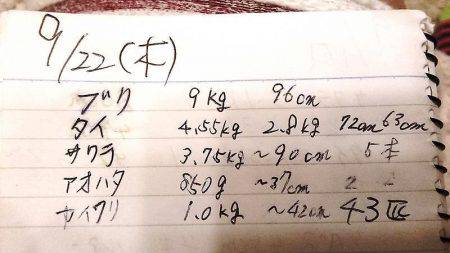 9/22(木)
ブリ 9kg 96cm
タイ 4.55kg 2.8kg 72cm 63cm
サワラ 3.75kg ~90cm 5本
アオハタ 850g ~37cm 2
カイワリ 1.0kg ~42cm 43匹